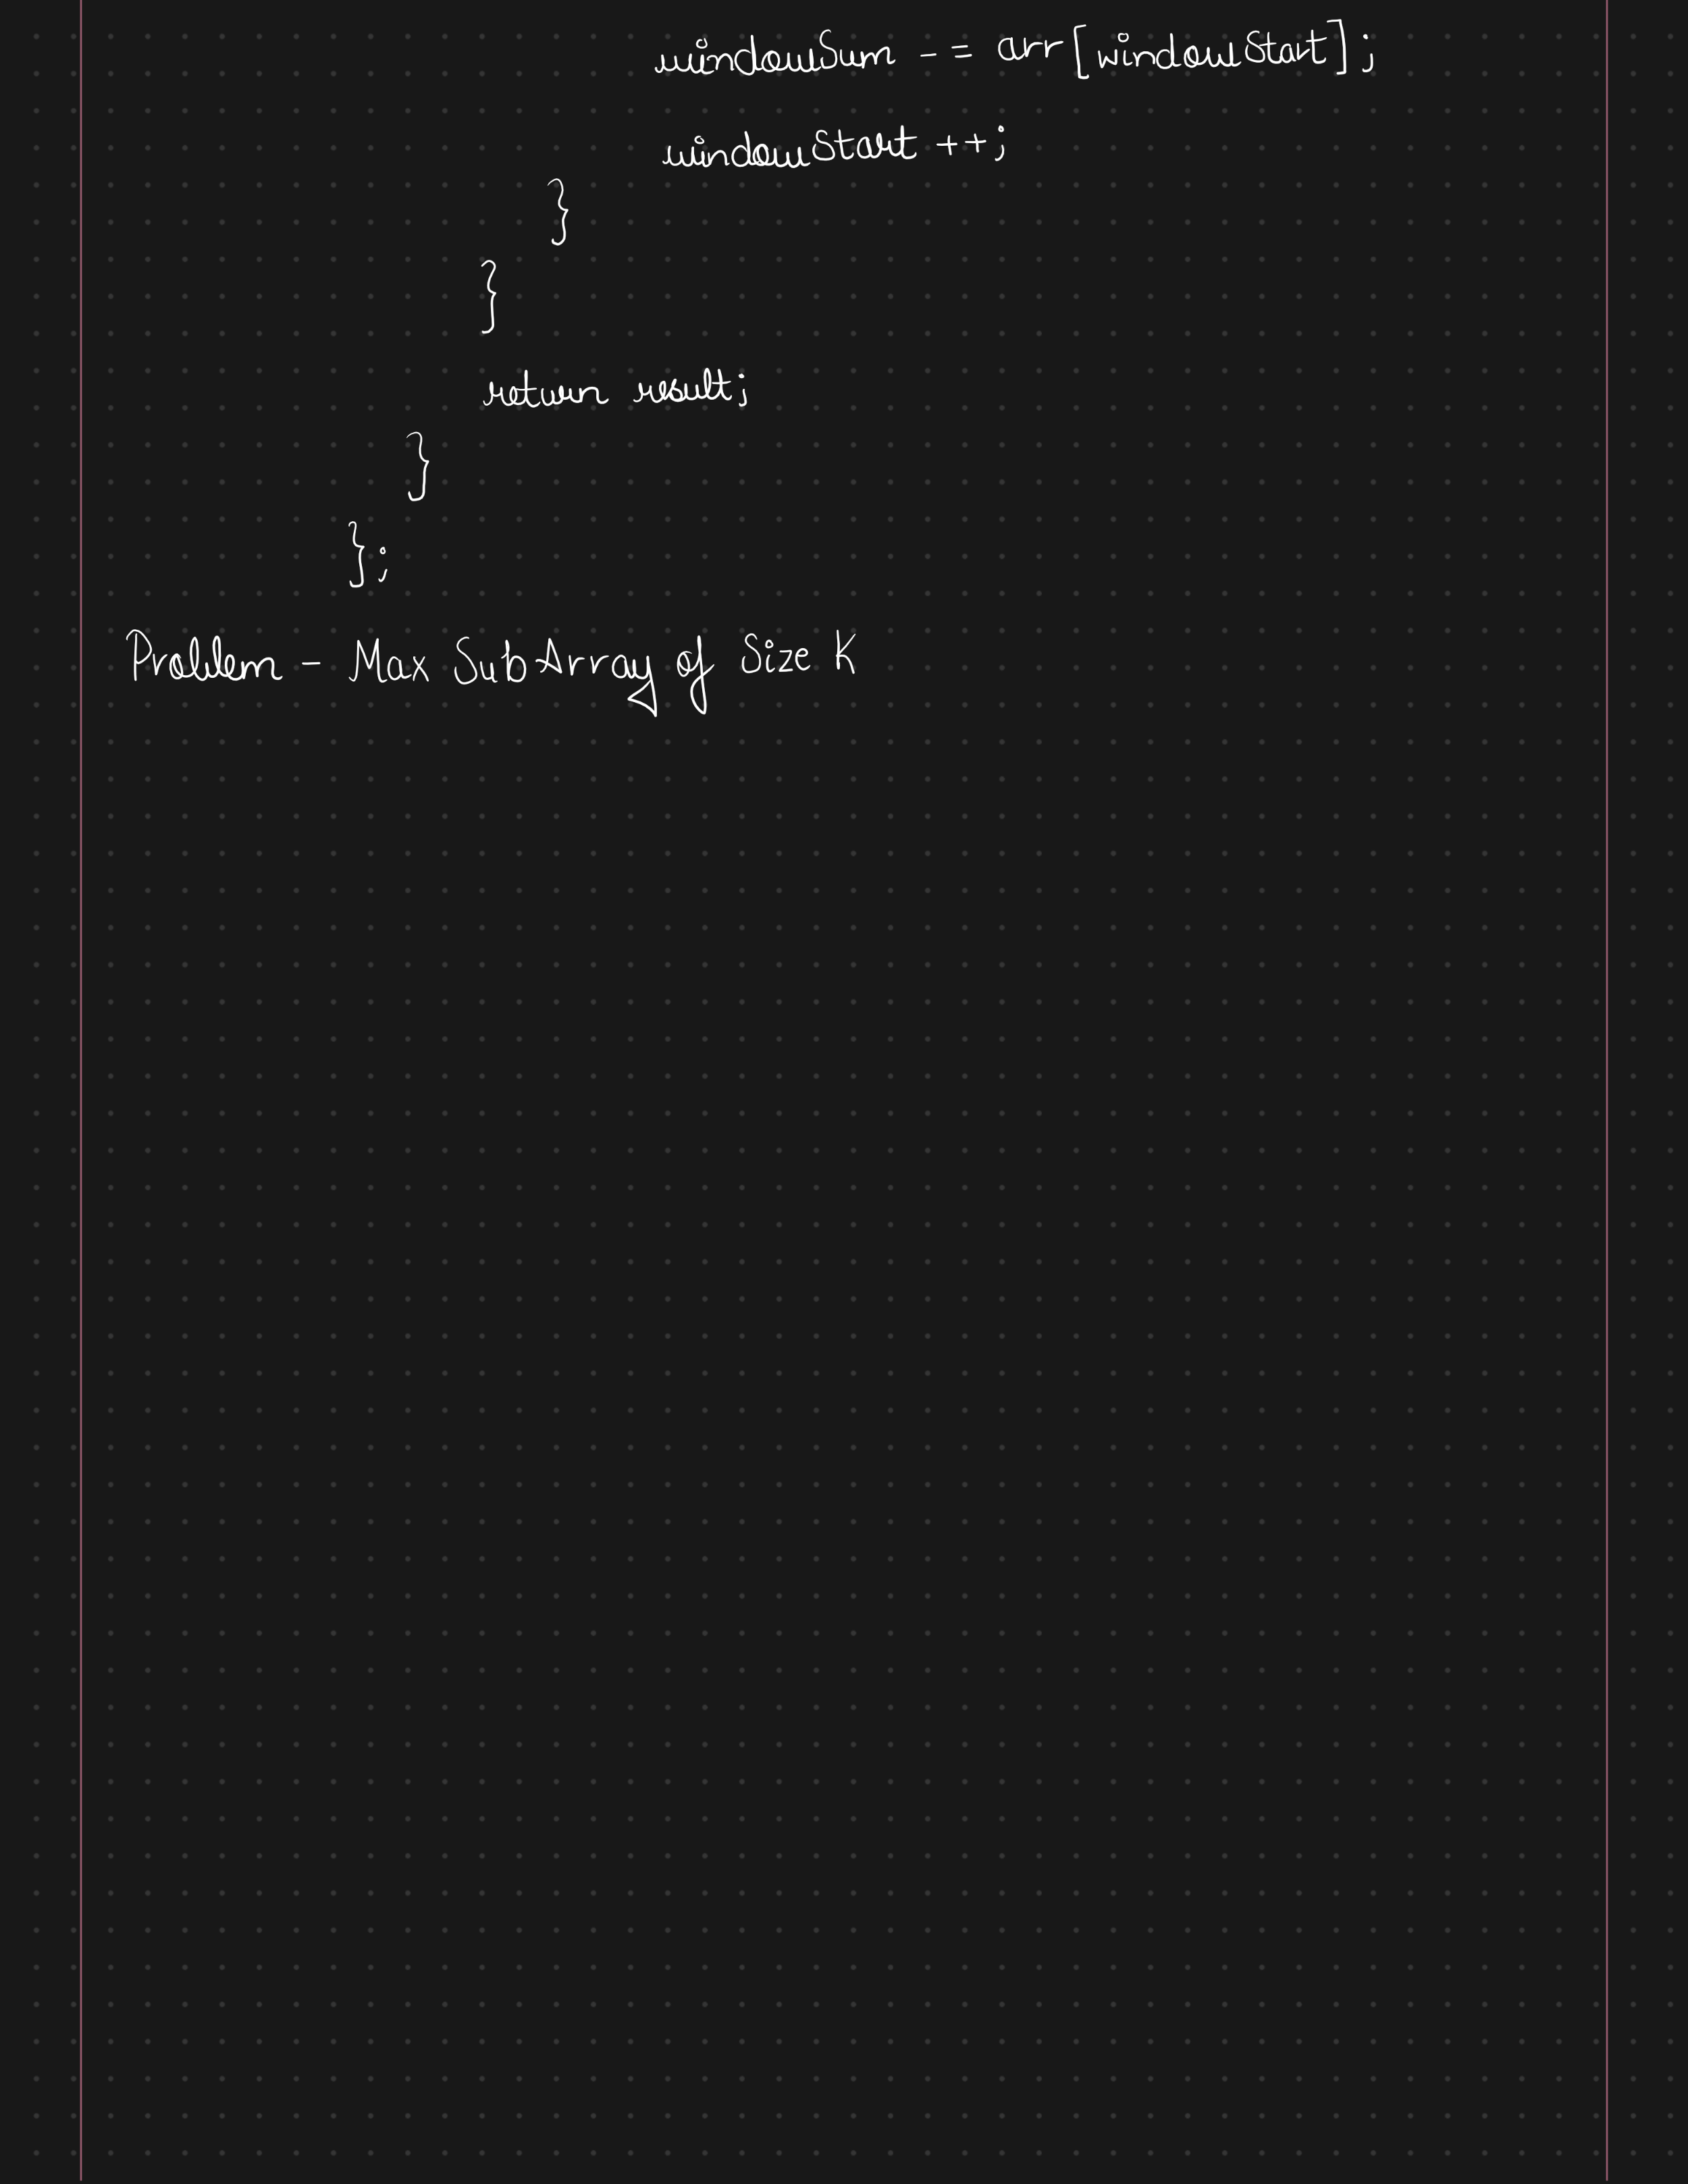 windowSum -= arr[windowStart];
windowStart ++;
}
}
return result;
}
};
Problem - Max SubArray of Size K